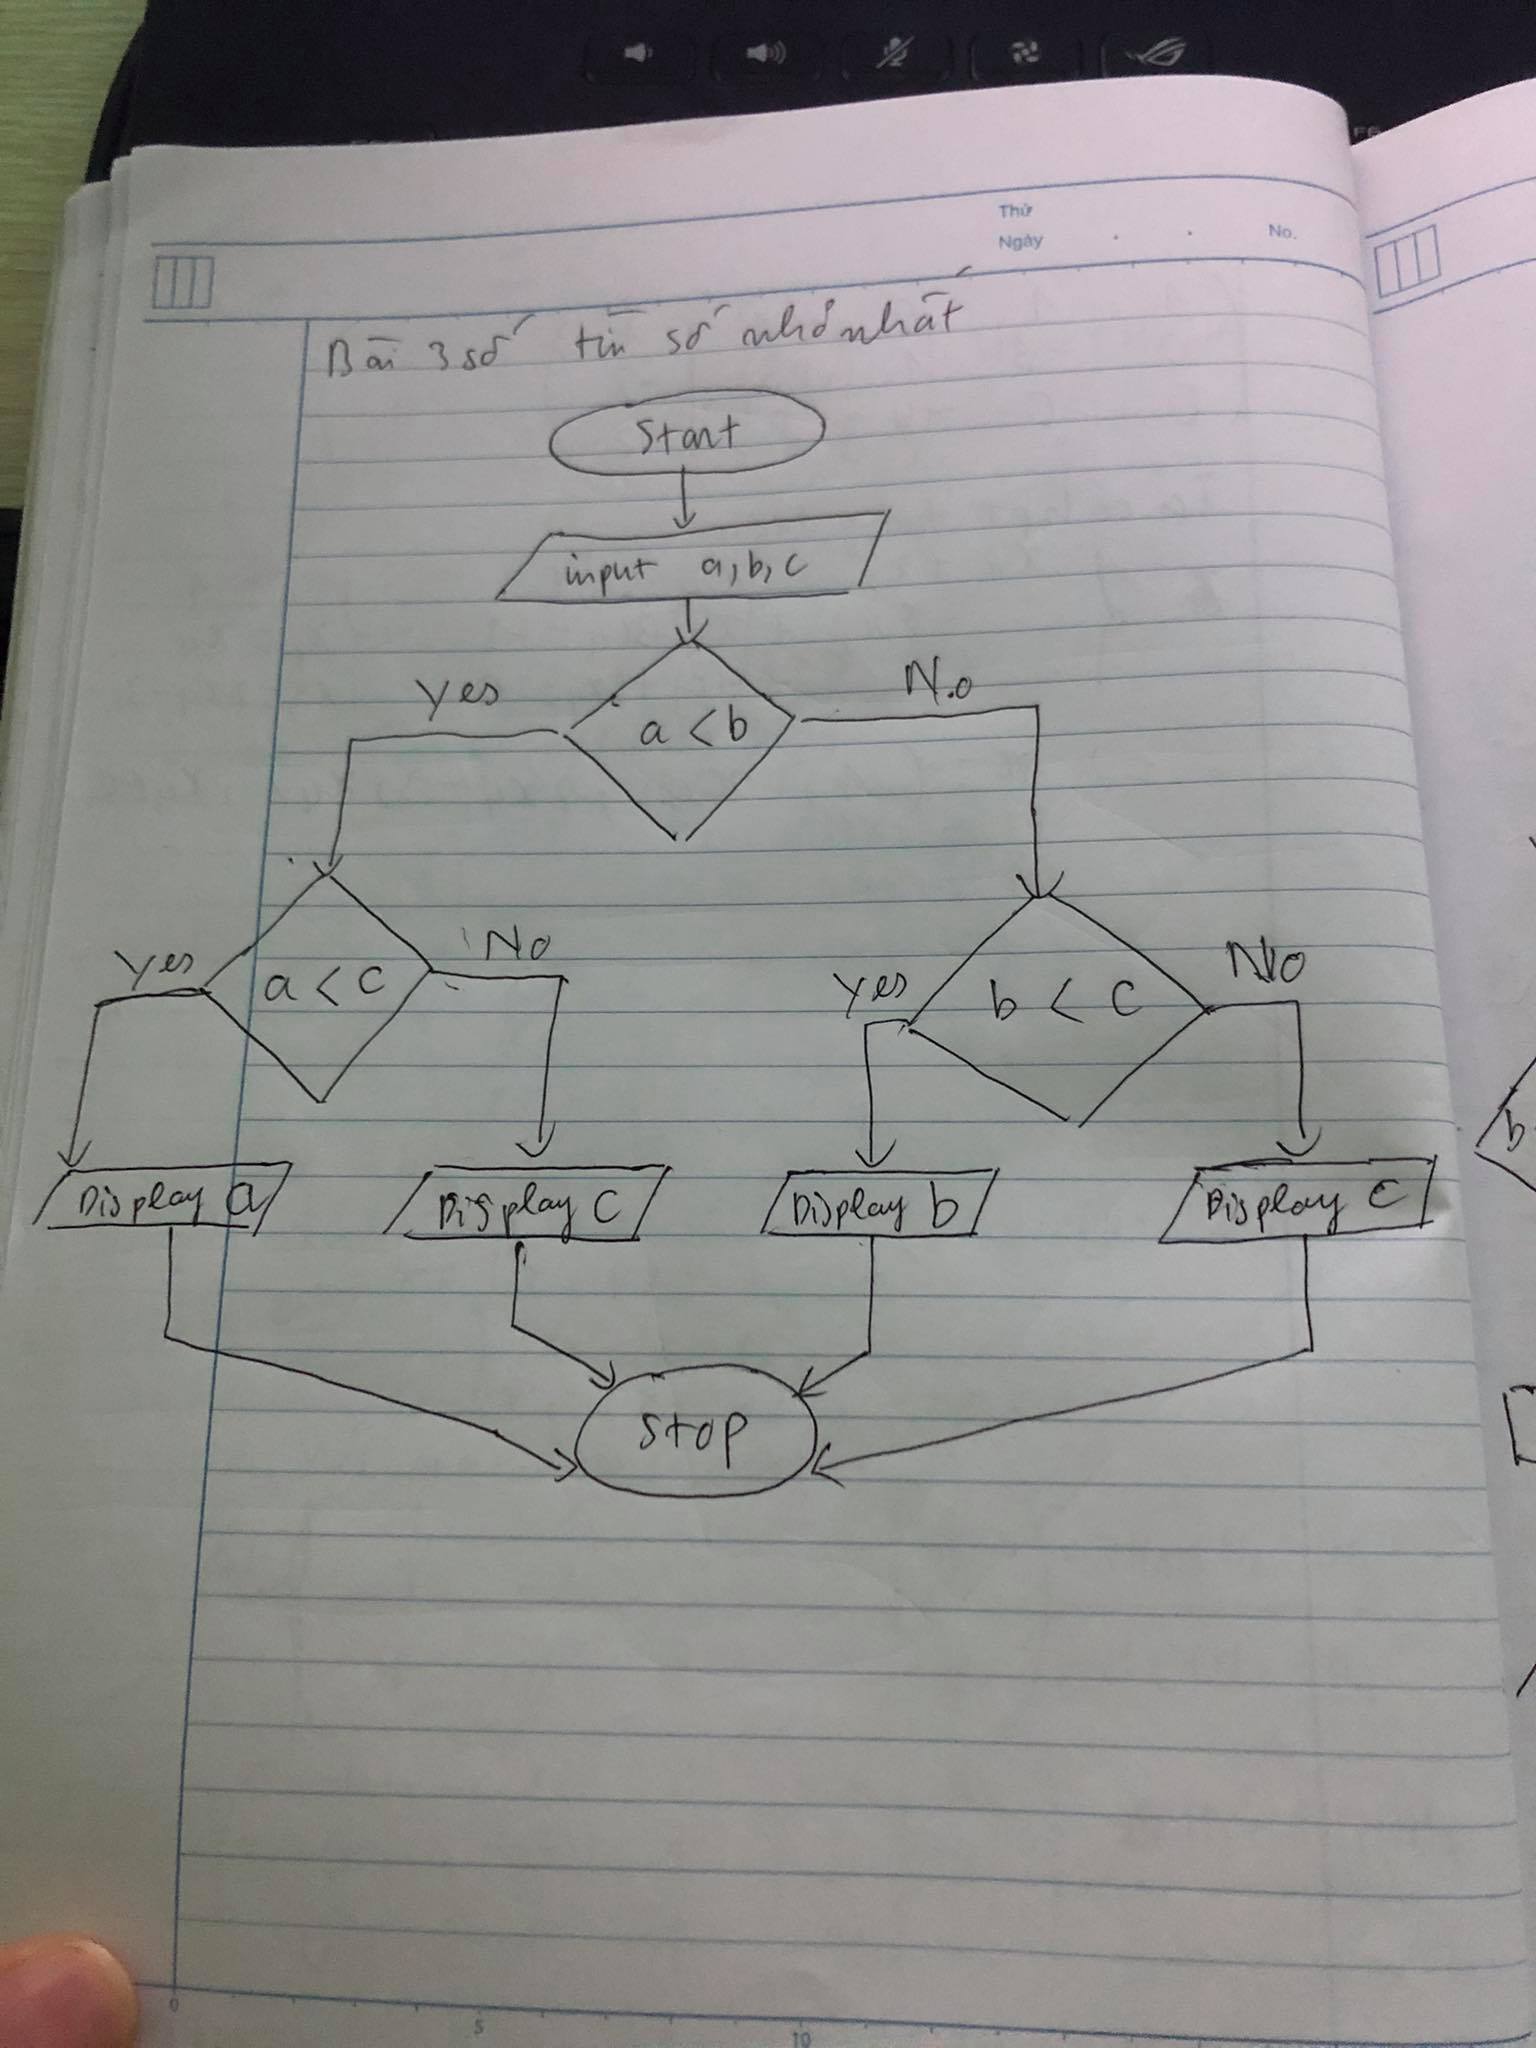 Thứ
Ngày
No.
Bài 3 số tìm số nhỏ nhất
Start
input a, b, c
Yes
No
a < b
Yes
No
a < c
Yes
No
b < c
Display a
Display c
Display b
Display c
Stop
b
0
5
10
F6